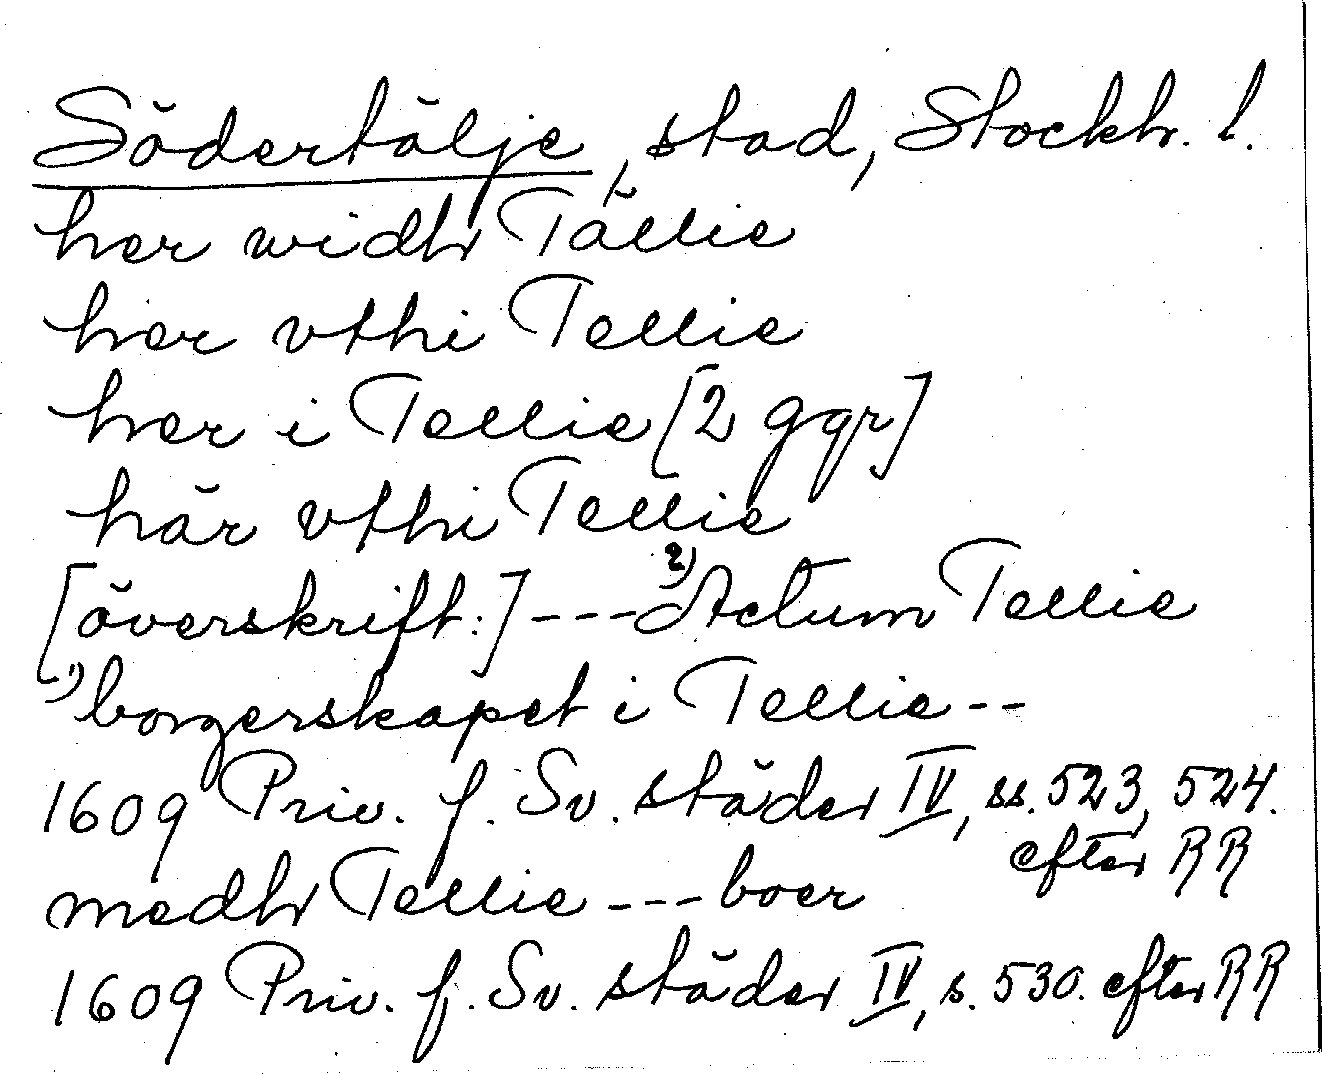 Södertälje, stad, Stockh. l.
her widh Tällie
her vthi Tellie
her i Tellie [2 ggr]
här vthi Tellie
[överskrift:] --- 2) Actum Tellie
1) borgerskapet i Tellie --
1609 Priv. f. Sv. städer IV, ss. 523, 524.
efter RR
medh Tellie --- boer
1609 Priv. f. Sv. städer IV, s. 530. efter RR